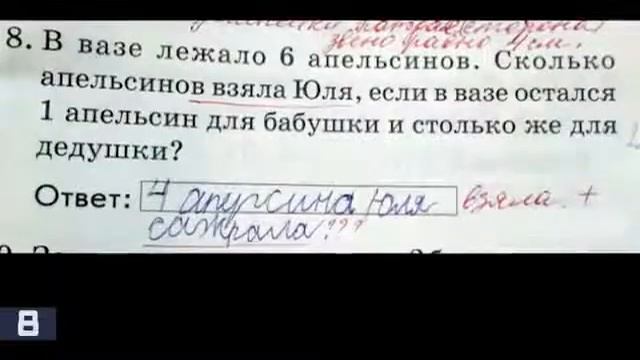 звено равно 4 см.
8. В вазе лежало 6 апельсинов. Сколько
апельсинов взяла Юля, если в вазе остался
1 апельсин для бабушки и столько же для
дедушки?
Ответ: 4 апурсина юля взяла. +
сажрала???
8